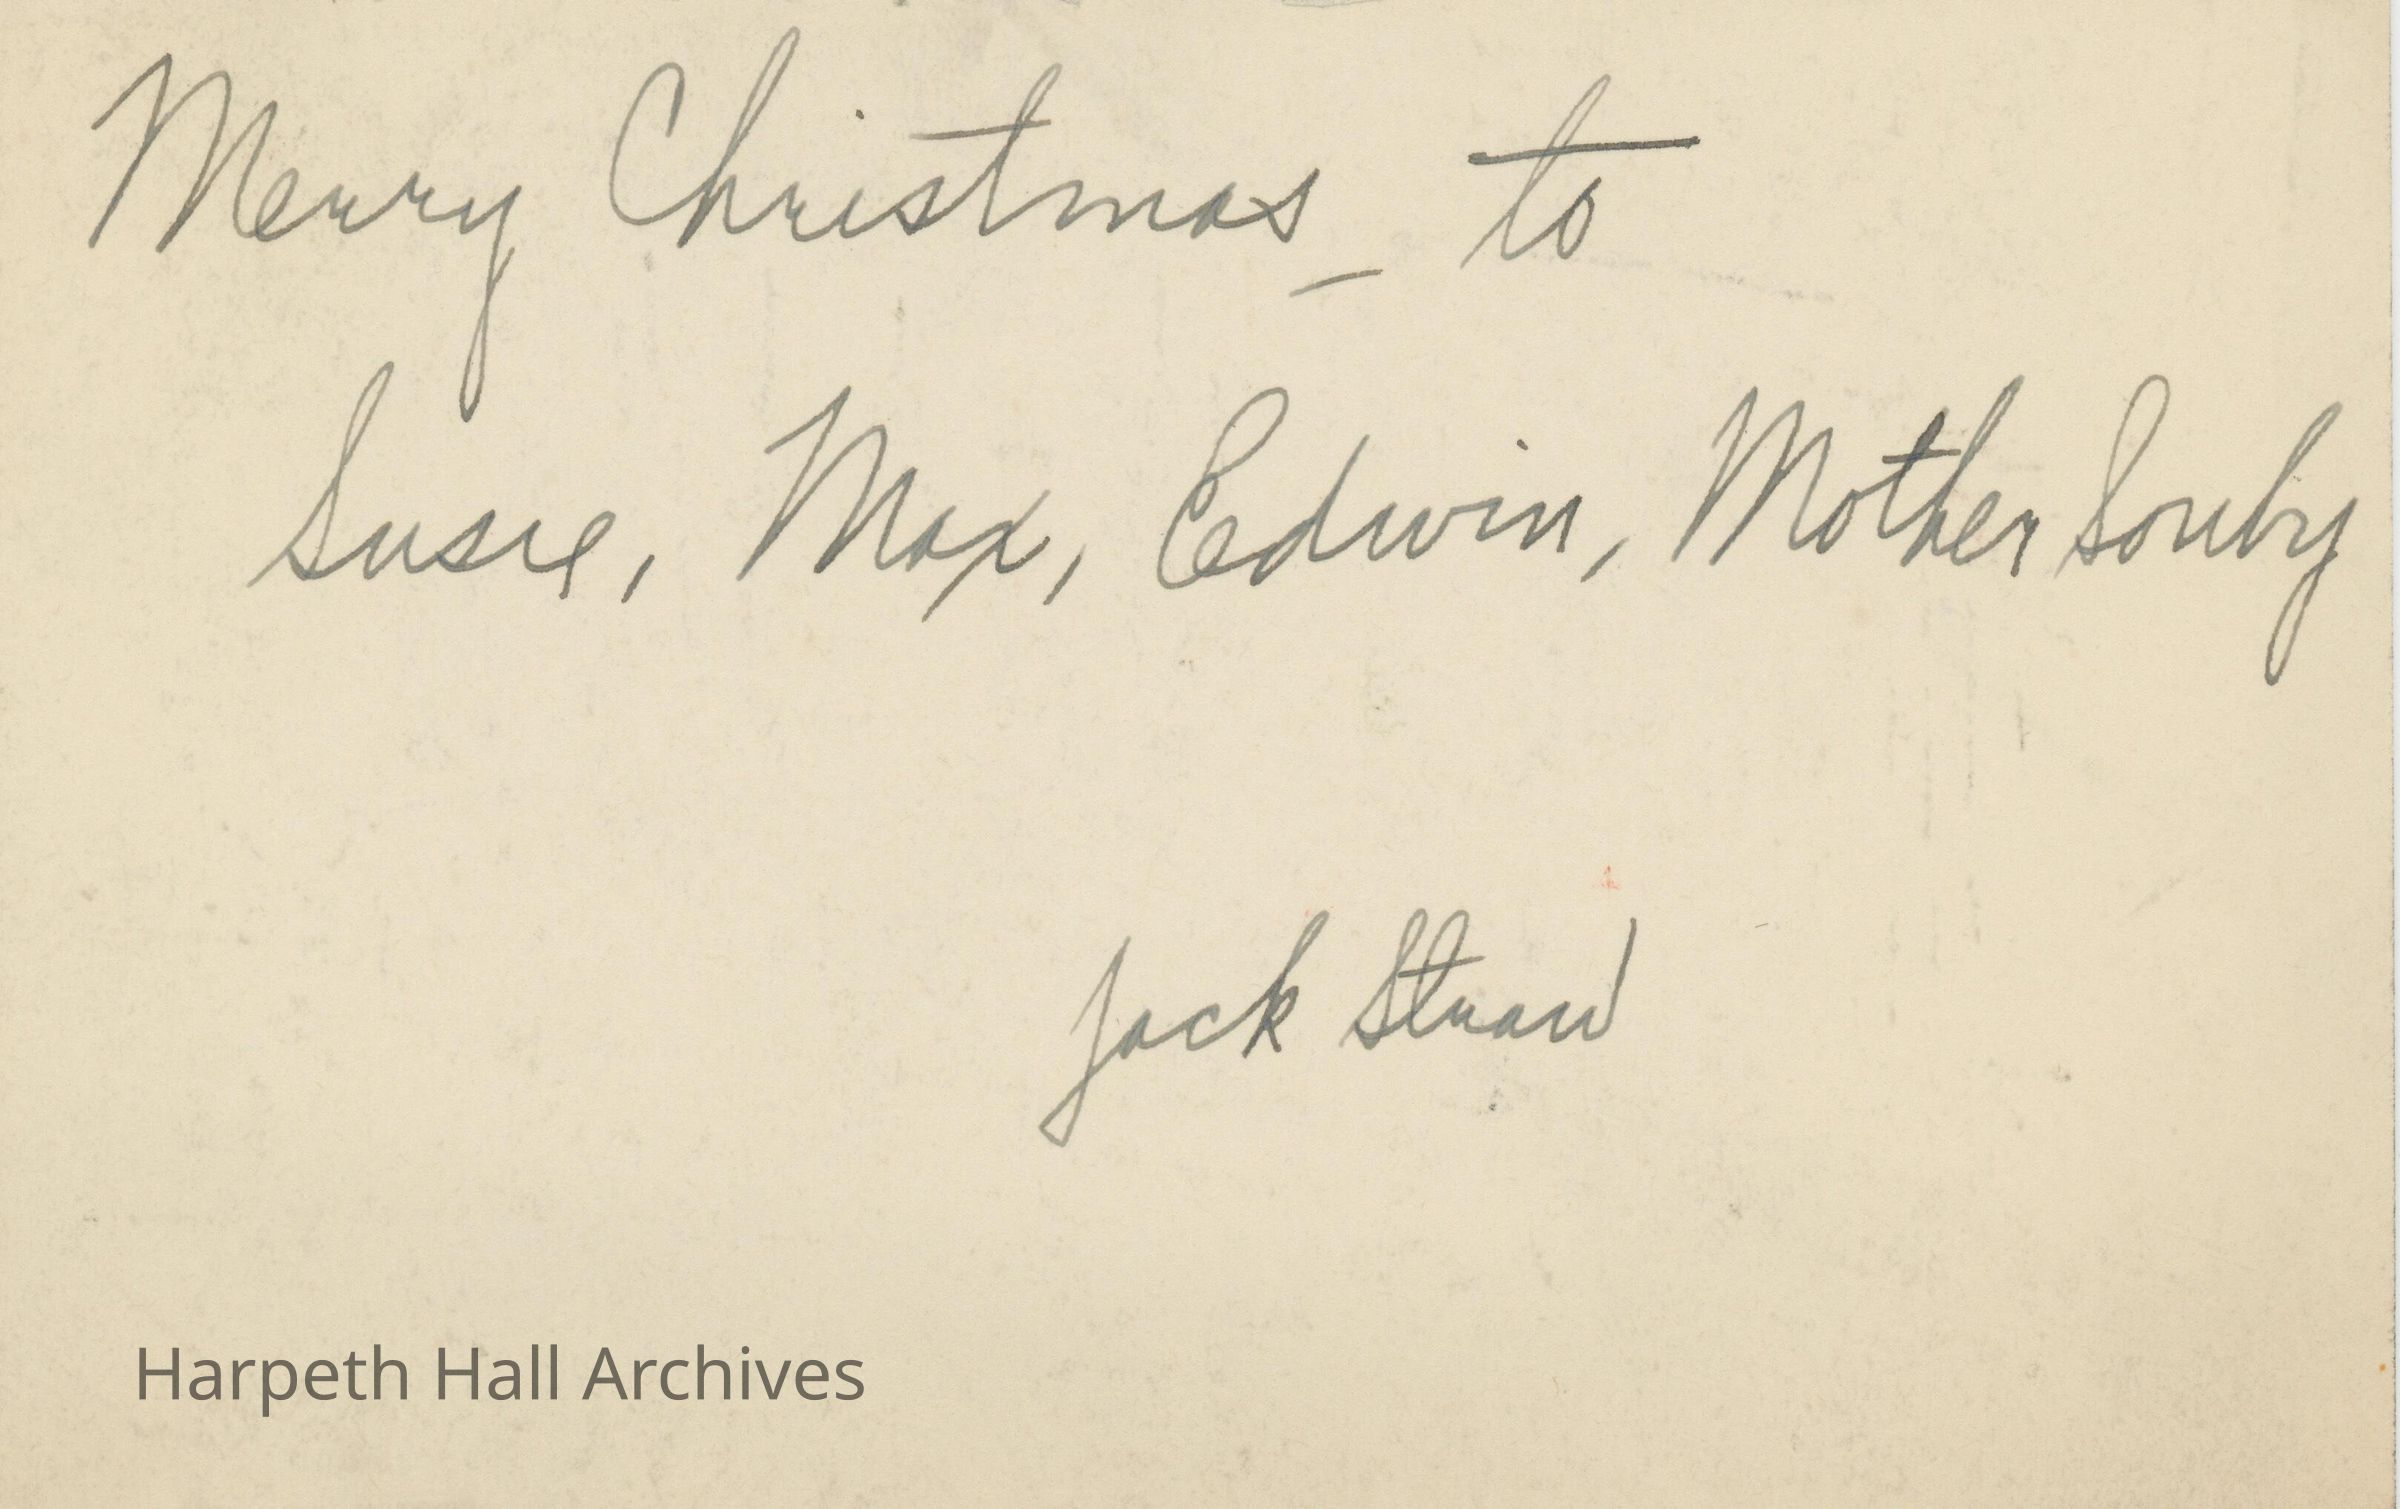 Merry Christmas_ to
Susie, Max, Edwin, Mother Souby
Jack Straw
Harpeth Hall Archives